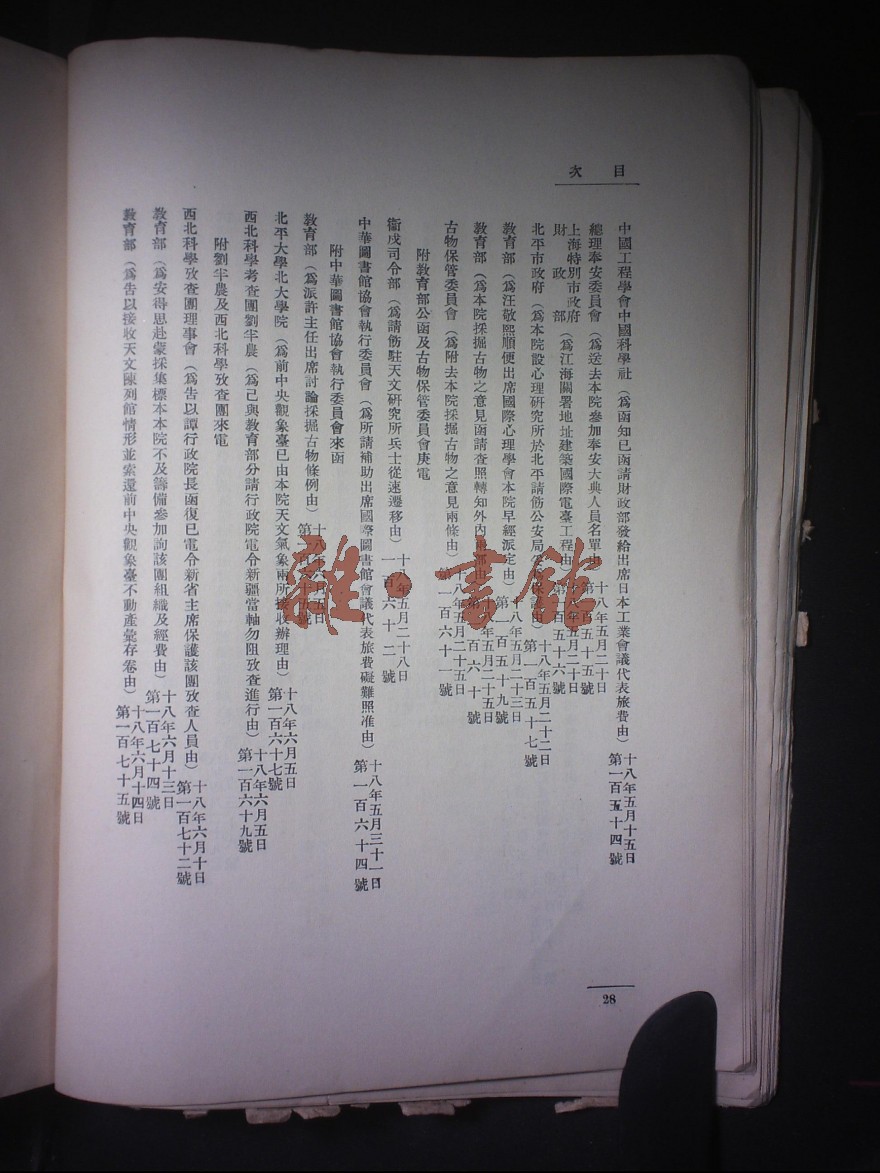 目次
中國工程學會中國科學社（爲函知已函請財政部發給出席日本工業會議代表旅費由）十八年五月十五日 第一百五十四號
總理奉安委員會（爲送去本院參加奉安大典人員名單由）十八年五月二十日 第一百五十五號
上海特別市政府 財政部（爲江海關署地址建築國際電臺工程由）十八年五月二十日 第一百五十六號
北平市政府（爲本院設心理研究所於北平請飭公安局 保 由）十八年五月二十二日 第一百五十七號
教育部（爲汪敬熙順便出席國際心理學會本院早經派定由）十八年五月二十三日 第一百五十九號
教育部（爲本院採掘古物之意見函請查照轉知外內兩部由）十八年五月二十五日 第一百六十號
古物保管委員會（爲附去本院採掘古物之意見兩條由）十八年五月二十五日 第一百六十一號
附教育部公函及古物保管委員會庚電
衞戍司令部（爲請飭駐天文研究所兵士從速遷移由）十八年五月二十八日 一百六十二號
中華圖書館協會執行委員會（爲所請補助出席國際圖書館會議代表旅費礙難照准由）十八年五月三十一日 第一百六十四號
附中華圖書館協會執行委員會來函
教育部（爲派許主任出席討論採掘古物條例由）十八年六月五日 第一百六十五號
北平大學北大學院（爲前中央觀象臺已由本院天文氣象兩所接收辦理由）十八年六月五日 第一百六十七號
西北科學考查團劉半農（爲已與教育部分請行政院電令新疆當軸勿阻攷查進行由）十八年六月五日 第一百六十九號
附劉半農及西北科學攷查團來電
西北科學攷查團理事會（爲告以譚行政院長函復已電令新省主席保護該團攷查人員由）十八年六月十日 第一百七十二號
教育部（爲安得思赴蒙採集標本本院不及籌備參加詢該團組織及經費由）十八年六月十三日 第一百七十四號
教育部（爲告以接收天文陳列館情形並索還前中央觀象臺不動產彙存卷由）十八年六月十四日 第一百七十五號
28
雜·書館